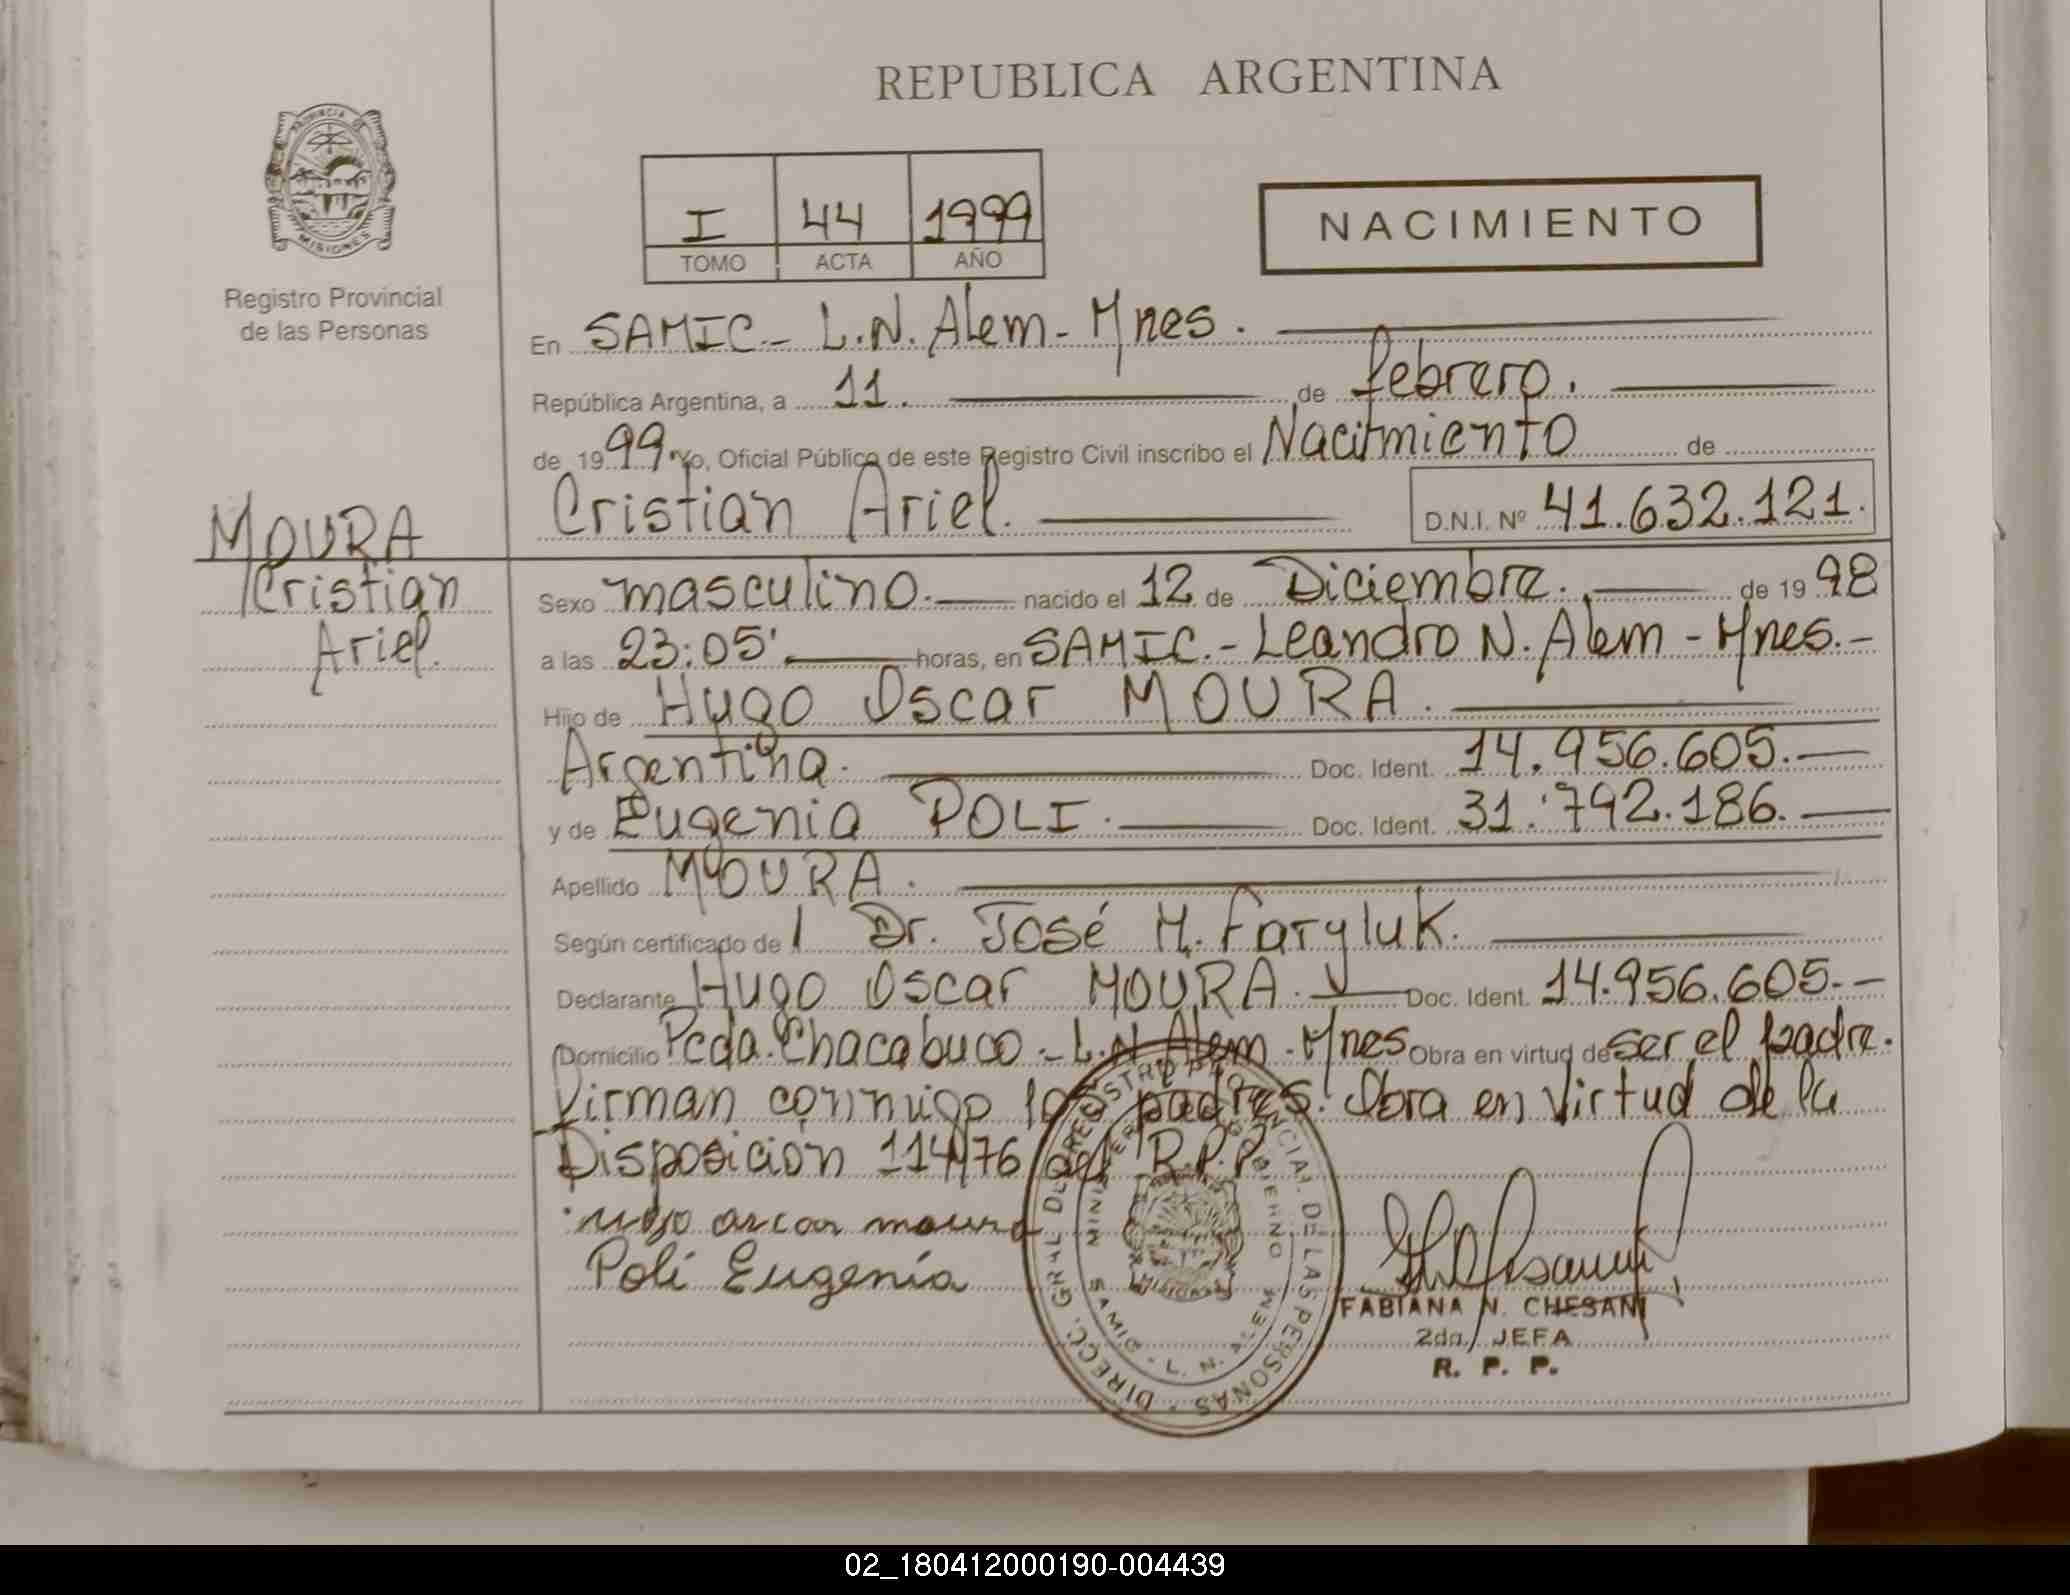 REPUBLICA ARGENTINA
PROVINCIA DE
MISIONES
Registro Provincial
de las Personas
I 44 1999
TOMO ACTA AÑO
NACIMIENTO
En SAMIC.- L.N. Alem - Mnes.
República Argentina, a 11. de febrero.
de 1999 Yo, Oficial Público de este Registro Civil inscribo el Nacimiento de
Cristian Ariel. D.N.I. Nº 41.632.121.
MOURA
Cristian
Ariel.
Sexo masculino. nacido el 12 de Diciembre. de 1998
a las 23:05' horas, en SAMIC.- Leandro N. Alem - Mnes.-
Hijo de Hugo Oscar MOURA.
Argentina. Doc. Ident. 14.956.605.-
y de Eugenia POLI. Doc. Ident. 31.792.186.
Apellido MOURA.
Según certificado de l Dr. José M. Faryluk.
Declarante Hugo Oscar MOURA. Doc. Ident. 14.956.605.-
Domicilio Pcda. Chacabuco - L.N. Alem - Mnes Obra en virtud de ser el padre.
Firman conmigo los padres. Obra en virtud de la
Disposición 114/76 del R.P.P.
oscar moura
Poli Eugenia
DIRECC. GRAL DE REGISTRO PROVINCIAL DE LAS PERSONAS
MINISTERIO DE GOBIERNO
SAMIC - L. N. ALEM
MISIONES
FABIANA N. CHESANI
2da. JEFA
R. P. P.
02_180412000190-004439